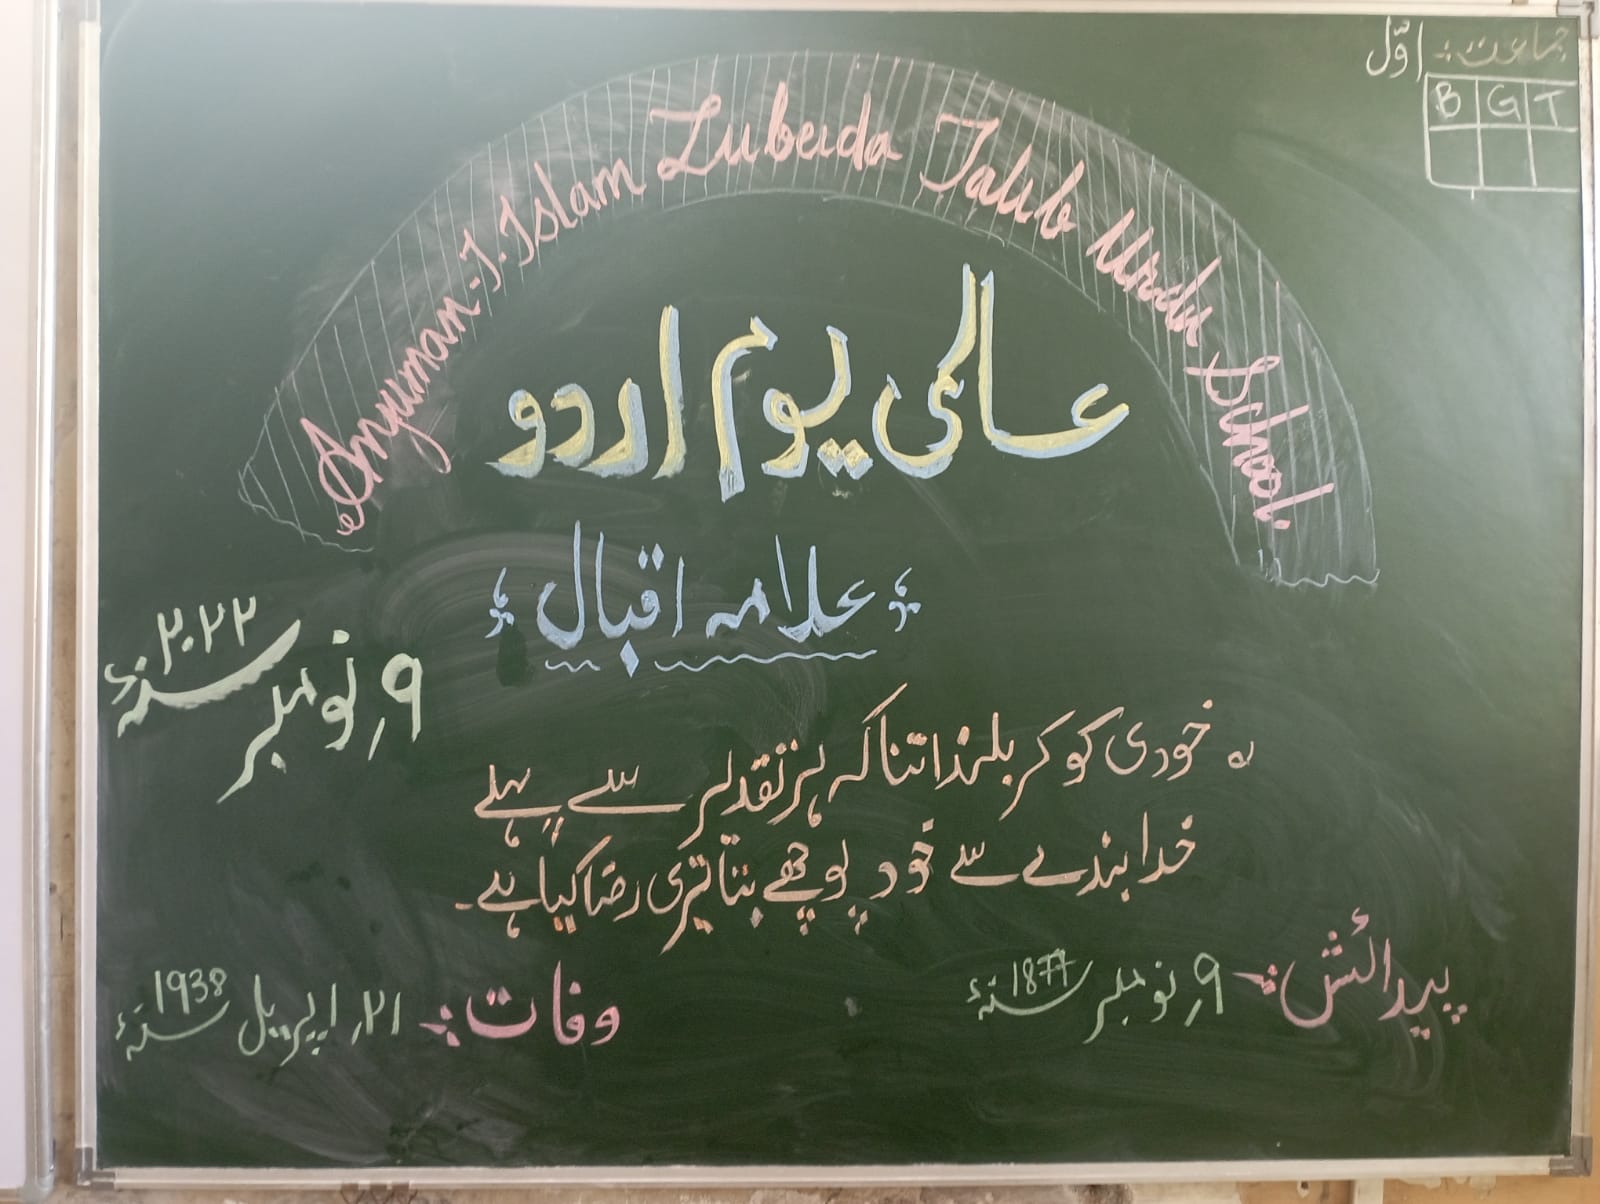 جماعت:- اوّل
B G T
Anjuman-I-Islam Zubeida Talib Urdu School.
عالمی یوم اردو
؛ علامہ اقبال ؛
۹؍ نومبر ۲۰۲۲ سنہء
خودی کو کر بلند اتنا کہ ہر تقدیر سے پہلے
خدا بندے سے خود پوچھے بتا تیری رضا کیا ہے۔
پیدائش:- ۹؍ نومبر 1877 سنہء
وفات:- ۲۱؍ اپریل 1938 سنہء